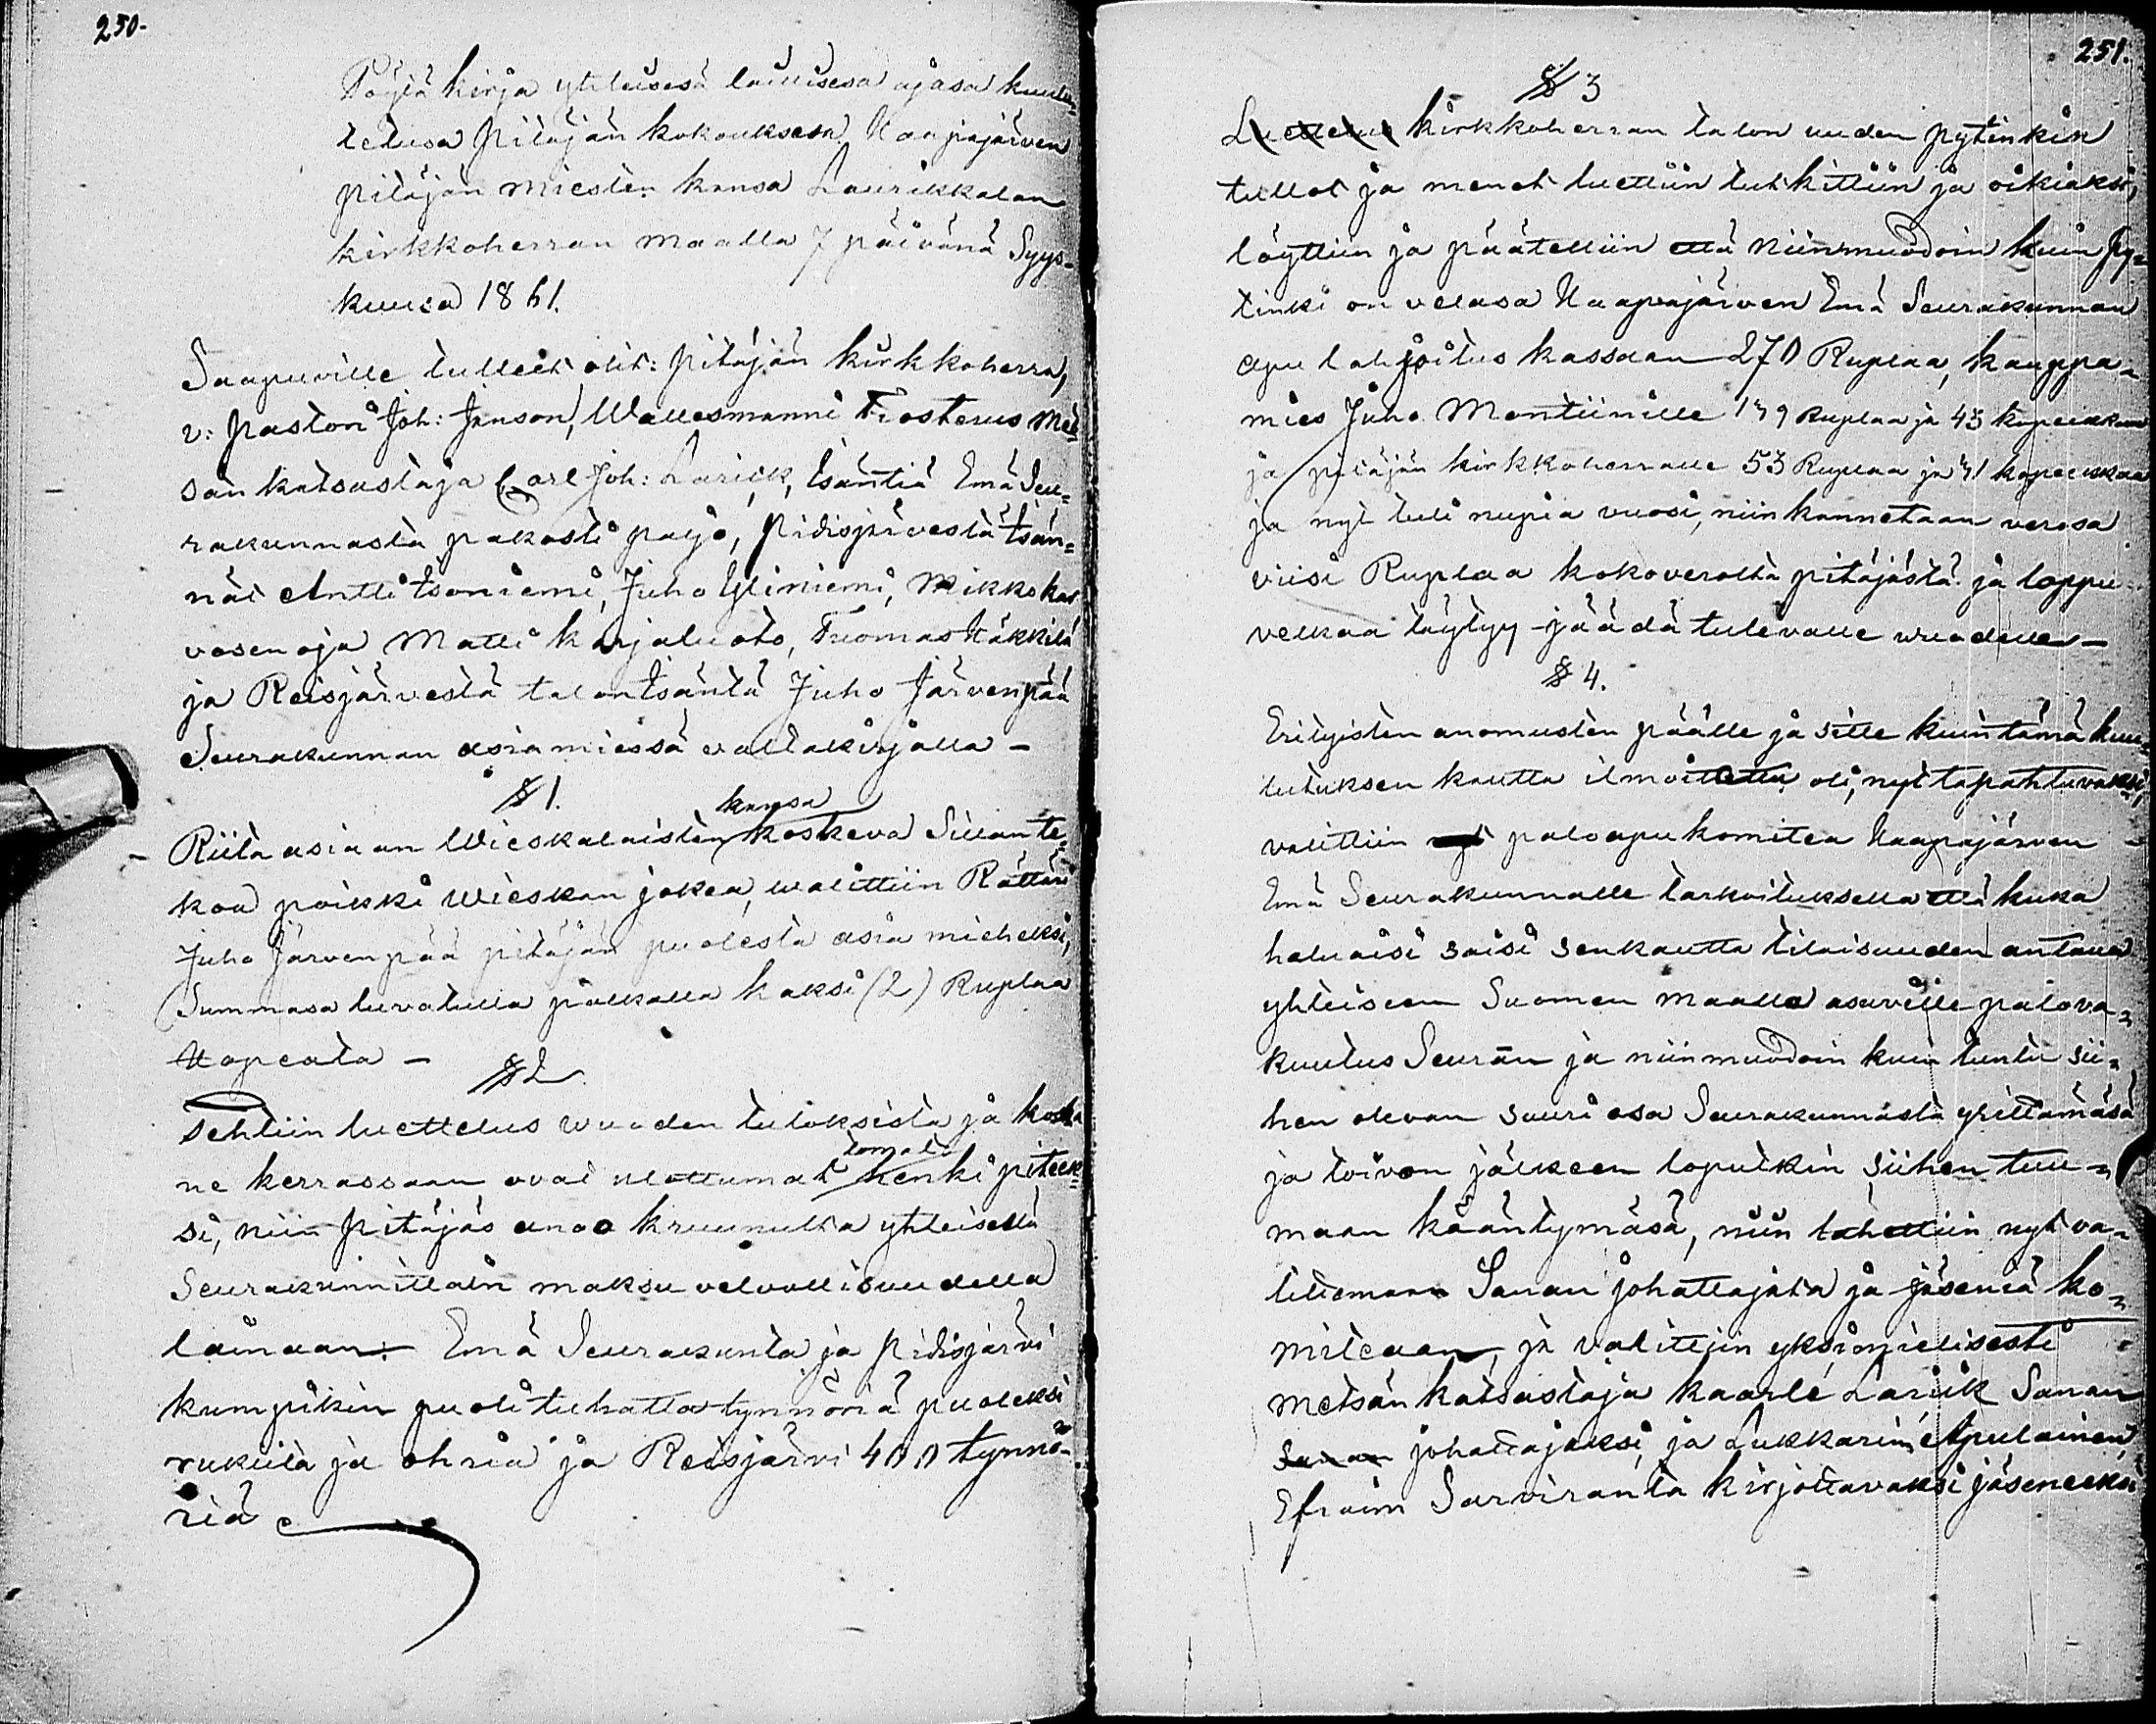 250.
Pöytä kirja yhteisesä laillisesa ajasa kuulu¬
tetusa Pitäjän kokouksesa Haapajärven
pitäjän miesten kansa Laurikkalan
kirkkoherran maalla 7 päivänä Syys¬
kuusa 1861.
Saapuville tulleet olit: Pitäjän kirkkoherra,
v: pastori Joh: Janson, Wallesmanni Frosterus Met¬
sän katsastaja Carl Joh: Lariik, Isäntiä Emä Seu¬
rakunnasta pakosti paljo, Pidisjärvestä Isän¬
nät Antti Isoniemi, Juho Yliniemi, Mikko Kar
vosenoja Matti Karjaluoto, Tuomas Häkkilä
ja Reisjärvestä talon Isäntä Juho Järvenpää
Seurakunnan asiamiessä valtakirjalla —
§ 1.
Riita asiaan Wieskalaisten kansa koskeva Sillan te¬
koa poikki Wieskan jokea, walittiin Rättäri
Juho Järvenpää pitäjän puolesta asia mieheksi,
Summasa luvatulla palkalla kaksi (2) Ruplaa
Hopeata —
§ 2
Tehtiin luettelus wuoden tuloksista ja koska
ne kerrassaan ovat ulottumattomat henki piteek
si, niin Pitäjäs anoo kruunulta yhteisellä
Seurakunnittain maksu velvollisuudella
lainaan: Emä Seurakunta ja Pidisjärvi
kumpikin puolituhatta tynnöriä puoleksi
rukiita ja ohria ja Reisjärvi 400 tynnö¬
riä
251.
§ 3
Luettelus kirkkoherran talon uuden pytinkin
tullot ja menot luettiin tutkittiin ja oikiaksi,
löyttiin ja päätettiin että niinmuodoin kuin py¬
tinki on velasa Haapajärven Emä Seurakunnan
apu lahjoitus kassaan 270 Ruplaa, kauppa¬
mies Juho Montiinille 139 Ruplaa ja 43 kopeikkaa
ja pitäjän kirkkoherralle 53 Ruplaa ja 31 kopeikkaa
ja nyt tuli nupia vuosi, niin kannetaan verosa
viisi Ruplaa kokoverolta pitäjästä ja loppu
velkaa täytyy jäädä tulevalle wuodelle —
§ 4.
Erityisten anomusten päälle ja sitte kuin tämä kuu¬
lutuksen kautta ilmoitettu oli, nyt tapahtuvaksi,
valittiin nyt paloapu komitea Haapajärven
Emä Seurakunnalle tarkoituksella että kuka
haluaisi saisi senkautta tilaisuuden antaua
yhteiseen Suomen maalla asuville palova¬
kuutus Seuraan ja niinmuodoin kuin tuntu sii¬
hen olevan suuri osa Seurakunnasta yrittämäsä
ja toivon jälkeen loputkin siihen tuu¬
maan kääntymäsä, niin tahottiin nyt va¬
litemaan Sanan johattajata ja jäseniä ko¬
miteaan, ja valittiin yksimielisesti
metsän katsastaja Kaarle Lariik Sanan
Sanan johattajaksi, ja Lukkarin Apulainen
Efraim Sarviranta kirjottavaksi jäseneeksi